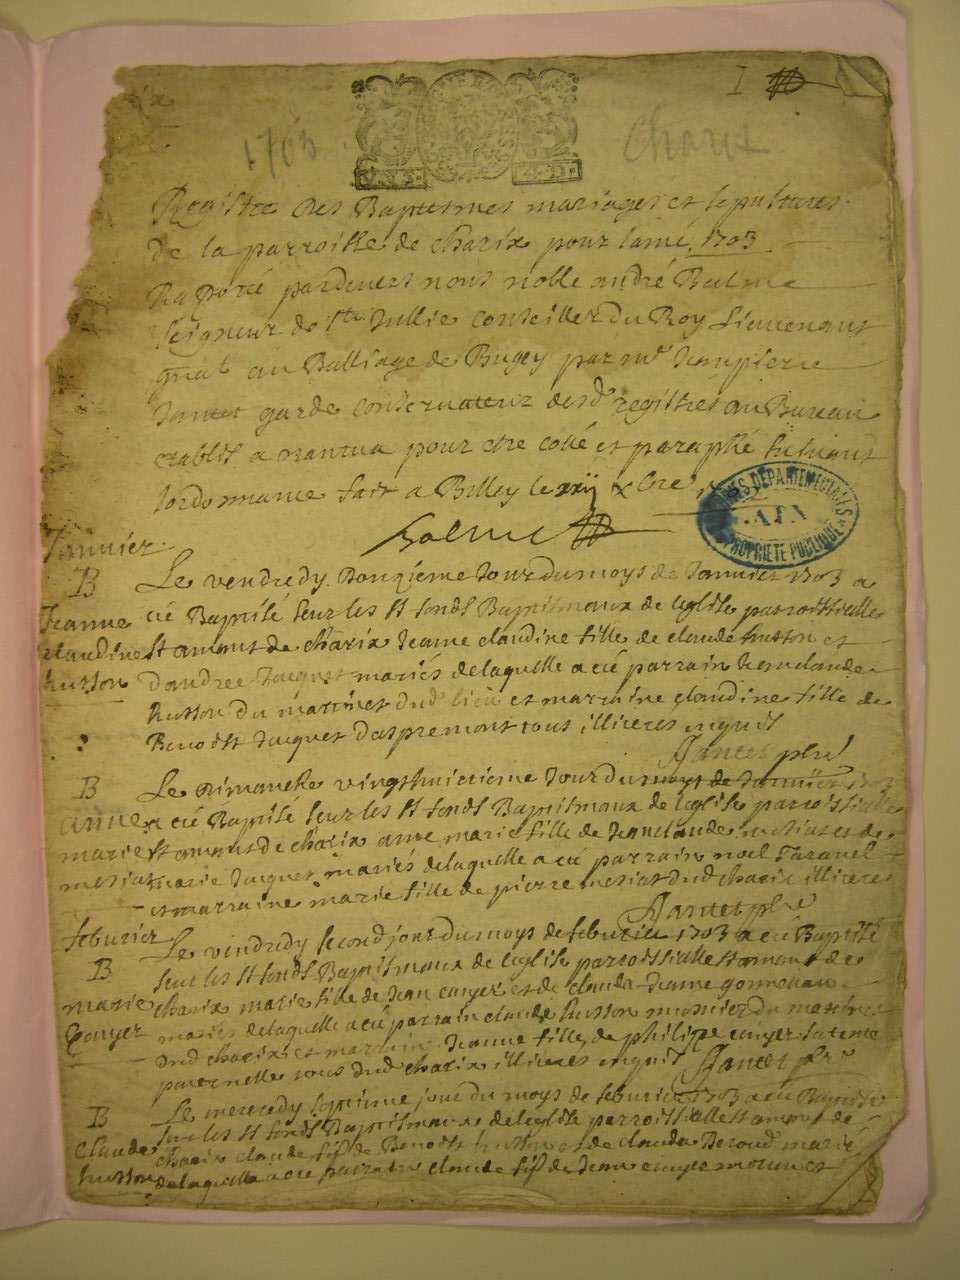 I
1703
Charix
Registre des Baptesmes mariages et sepultures
de la parroisse de Charix pour lanné 1703
Raporté pardevers nous noble andré Balme
seigneur de Ste Jullie Conseiller du Roy Lieutenant
gnal au Balliage de Bugey par mr
garde conservateur desd registres au Bureau
establis a nantua pour etre collé et paraphé suivant
lordonnance fait a Belley le xxij xbre
Balme
ARCHIVES DEPARTEMENTALES
AIN
PROPRIETE PUBLIQUE
Janvier
B
Jeanne
claudine
husson
Le vendredy Douzieme Jour du moys de Janvier 1703 a
eté Baptisé seur les St fonds Baptismaux de leglise parroissialle
St amant de Charix Jeanne claudine fille de claude husson et
dandree Jacquet mariés de laquelle a eté parrain Jean claude
husson du martinet dud lieu et marraine claudine fille de
Benoist Jacquet daspremont tous illiteres enquis
Jantet ptre
B
anne
marie
mesiat
Le Dimanche vingthuictieme Jour du moys de Janvier 1703
a eté Baptisé seur les St fonds Baptismaux de leglise parroissialle
St amant de Charix anne marie fille de Jean claude mesiat et de
marie Jacquet mariés de laquelle a eté parrain noel Taravel
et marraine marie fille de pierre mesiat dud Charix illiteres
Jantet ptre
feburier
B
marie
Gouyer
Le vendredy second jour du moys de feburier 1703 a eté Baptisé
seur les St fonds Baptismaux de leglise parroissialle St amant de
Charix marie fille de Jean gouyer et de claude Jeanne
mariés de laquelle a eté parrain claude husson musnier du martinet
dud Charix et marraine Jeanne fille de philippe gouyer sa tente
paternelle tous dud Charix illiteres enquis Jantet ptre
B
Claude
husson
Le mercredy septieme jour du moys de feburier 1703 a eté Baptisé
sur les St fonds Baptismaux de leglise parroissialle St amant de
Charix claude fils de Benoist husson et de claudа Beroud mariés
de laquelle a eté parrain claude fils de Jean gouyer et